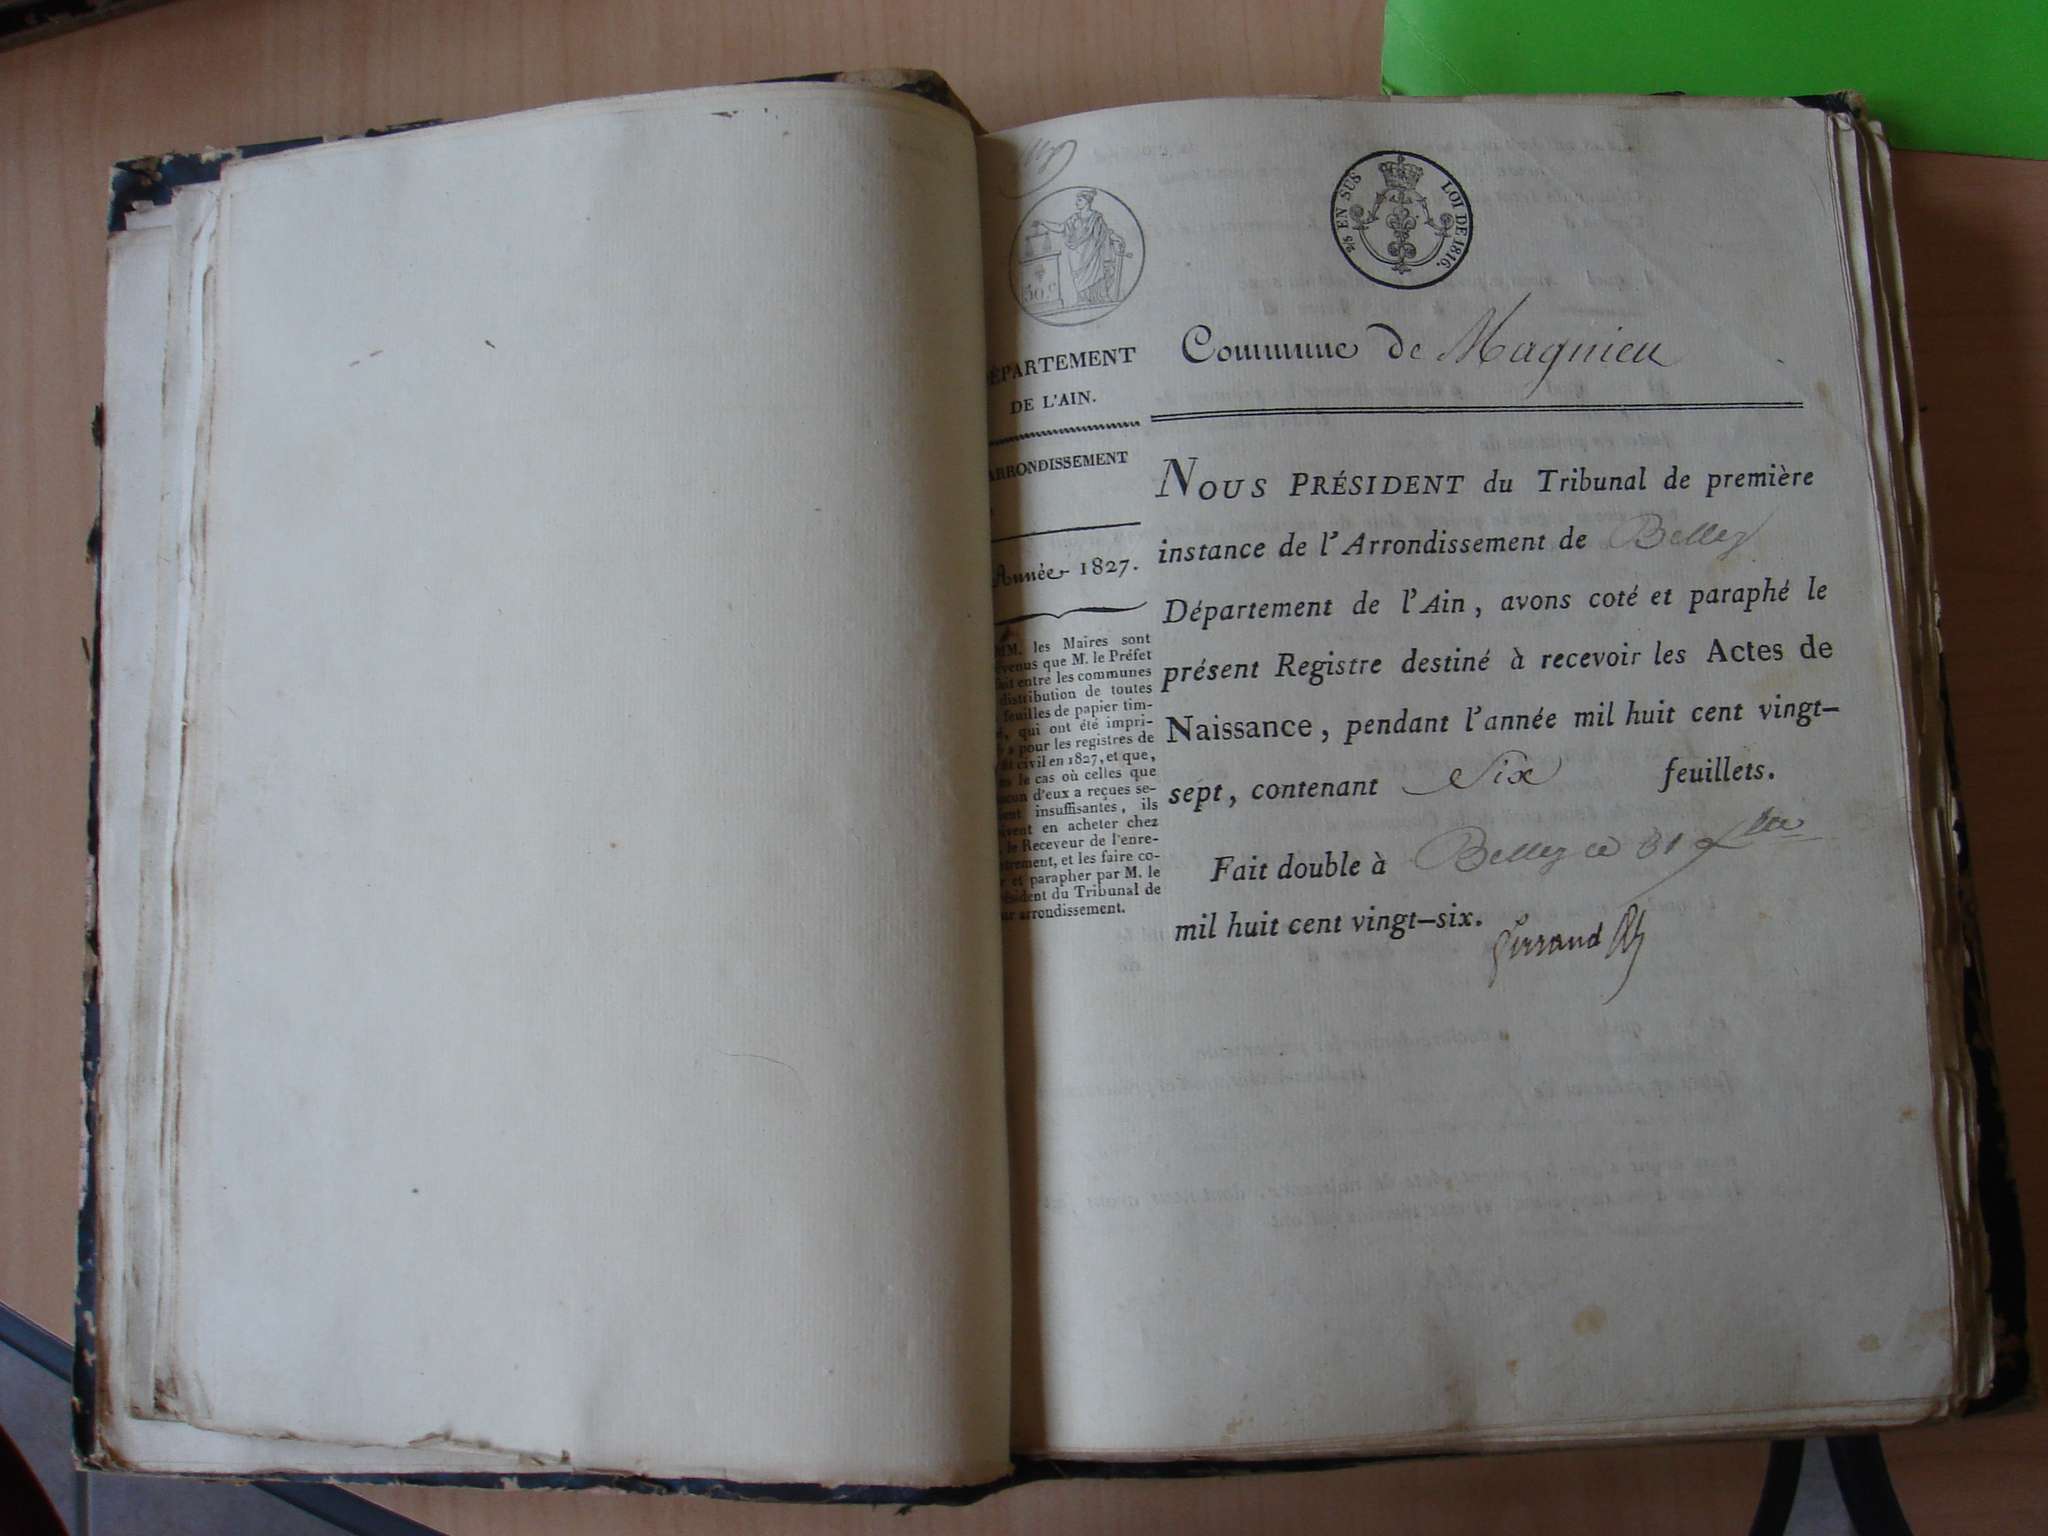 50 c.
2/5 EN SUS LOI DE 1816.
Commune de Magnieu
ÉPARTEMENT
DE L'AIN.
ARRONDISSEMENT
Année 1827.
MM. les Maires sont
venus que M. le Préfet
fait entre les communes
distribution de toutes
feuilles de papier tim-
, qui ont été impri-
s pour les registres de
civil en 1827, et que,
le cas où celles que
cun d'eux a reçues se-
ent insuffisantes, ils
ivent en acheter chez
le Receveur de l'enre-
trement, et les faire co-
r et parapher par M. le
ésident du Tribunal de
ur arrondissement.
NOUS PRÉSIDENT du Tribunal de première
instance de l'Arrondissement de Belley
Département de l'Ain, avons coté et paraphé le
présent Registre destiné à recevoir les Actes de
Naissance, pendant l'année mil huit cent vingt-
sept, contenant Six feuillets.
Fait double à Belley ce 31 xbre
mil huit cent vingt-six.